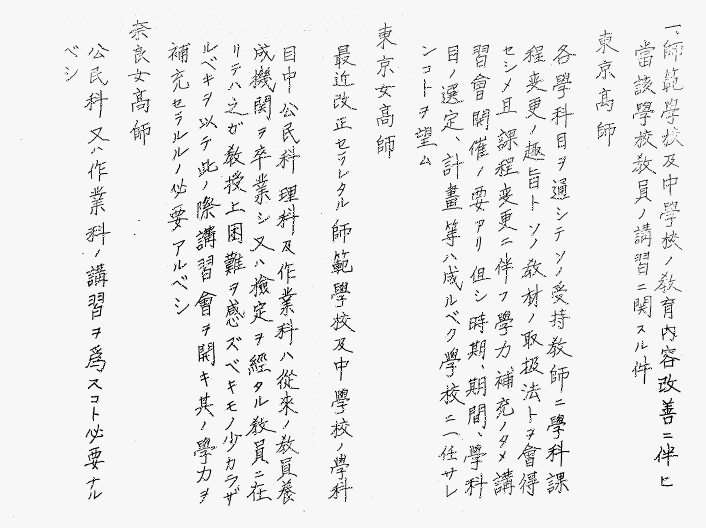 一、師範學校及中學校ノ教育內容改善ニ伴ヒ
當該學校教員ノ講習ニ関スル件
東京高師
各學科目ヲ通シテソノ受持教師ニ學科課
程変更ノ趣旨トソノ教材ノ取扱法トヲ會得
セシメ且課程変更ニ伴フ學力補充ノタメ講
習會開催ノ要アリ但シ時期、期間、學科
目ノ選定、計畫等ハ成ルベク學校ニ一任サレ
ンコトヲ望ム
東京女高師
最近改正セラレタル師範學校及中學校ノ學科
目中公民科理科及作業科ハ從來ノ教員養
成機関ヲ卒業シ又ハ檢定ヲ經タル教員ニ在
リテハ之ガ教授上困難ヲ感ズベキモノ少カラザ
ルベキヲ以テ此ノ際講習會ヲ開キ其ノ學力ヲ
補充セラルルノ必要アルベシ
奈良女高師
公民科又ハ作業科ノ講習ヲ為スコト必要ナル
ベシ